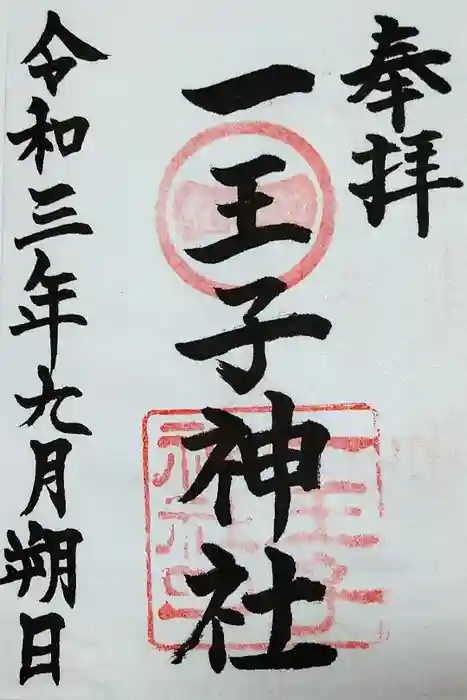 奉拝
一王子神社
令和三年九月朔日